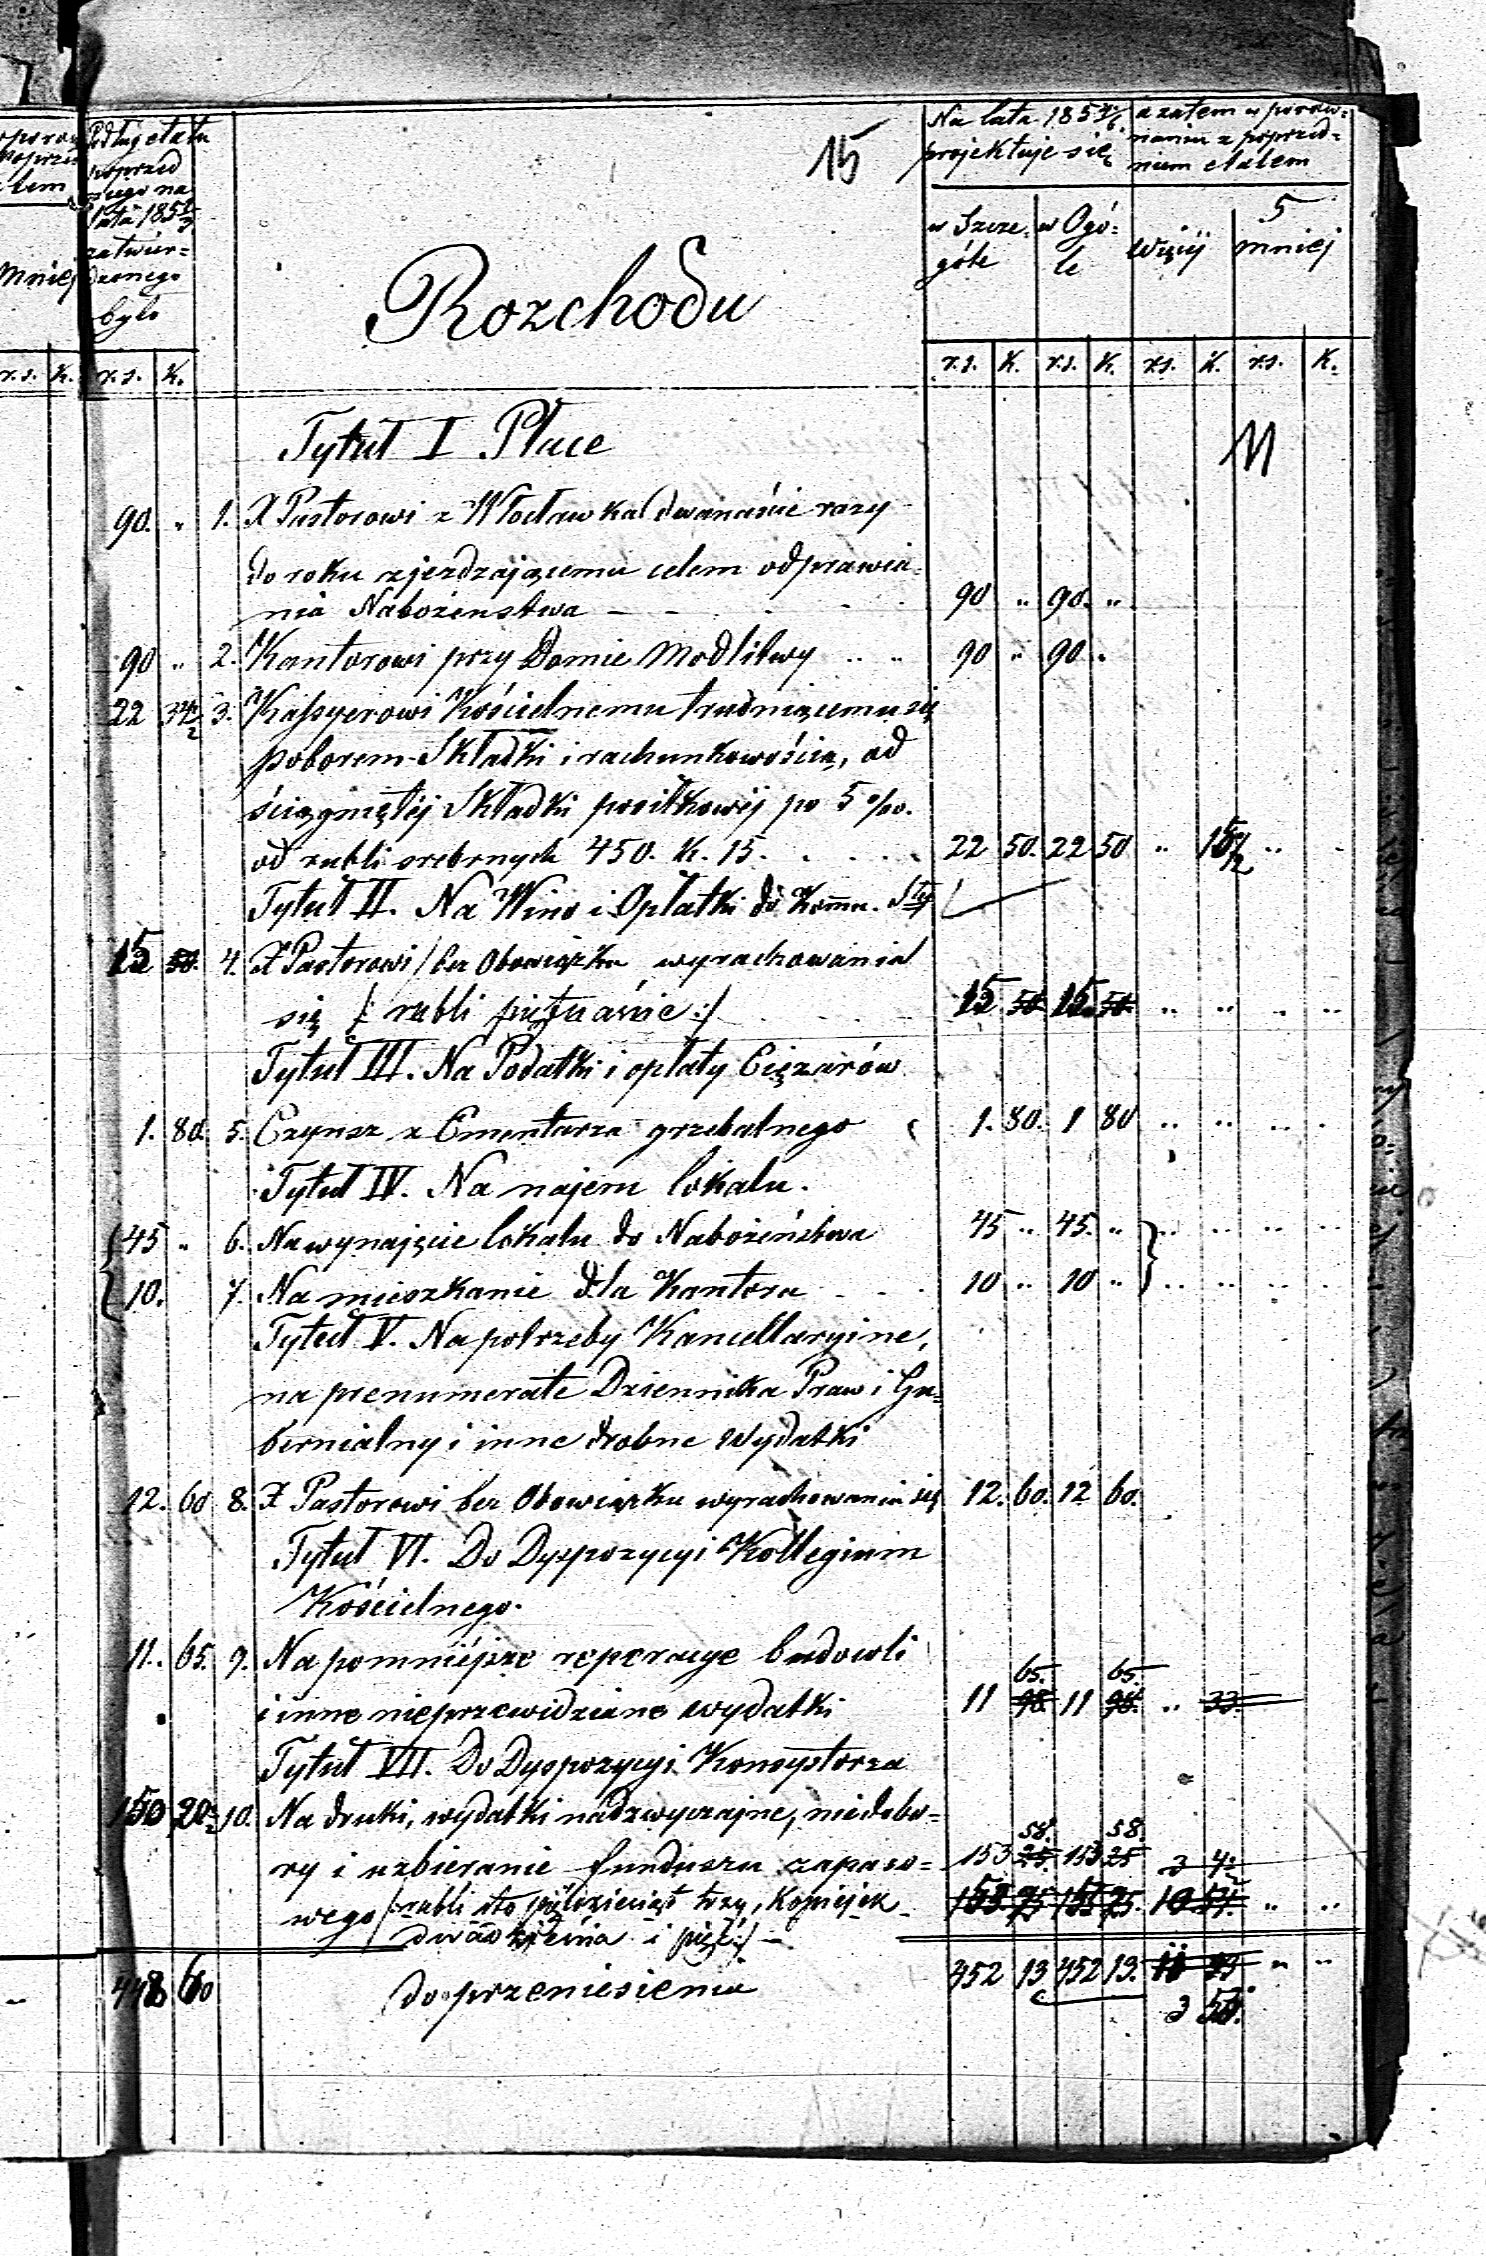 15
Podług etatu
poprzed
niego na
lata 185
zatwier=
dzonego
było
Na lata 185
projektuje się
a zatem w porów=
naniu z poprzed=
nim etatem
w Szcze=
góle
w Ogó=
le
więcej
5
mniej
mniej
Rozchodu
r.s. K. r.s. K. r.s. K. r.s. K. r.s. K. r.s. K.
Tytuł I Płace
11
90. " 1. X Pastorowi z Włocławka (dwanaście razy
do roku zjezdzającemu celem odprawia=
nia Nabożenstwa 90 " 90. "
90 " 2. Kantorowi przy Domie Modlitwy 90 " 90 "
22 34½ 3. Kassyerowi Kościelnemu trudniącemu się
poborem Składki i rachunkowością, od
ściągniętej Składki posiłkowéj po 5 %.
od rubli srebrnych 450. K. 15. 22 50. 22 50 " 15½ "
Tytuł II. Na Wino i Opłatki do Komu. Stej
15 50. 4. X Pastorowi / bez Obowiązku wyrachowania
się /: rubli piętnaście :/ 15 50 15 50 " " " "
Tytuł III. Na Podatki i opłaty Ciężarów
1. 80. 5. Czynsz z Cmentarza grzebalnego 1. 80. 1 80 " " " "
Tytuł IV. Na najem lokalu.
45 " 6. Na wynajęcie lokalu do Nabożeństwa 45 " 45. " " " " "
10. 7. Na mieszkanie dla Kantora 10 " 10 " " " " "
Tytuł V. Na potrzeby Kancellaryine,
na prenumerate Dziennika Praw i Gu=
bernialny i inne drobne Wydatki
12. 60 8. X Pastorowi bez Obowiązku wyrachowania się 12. 60. 12 60.
Tytuł VI. Do Dyspozycyi Kollegium
Kościelnego.
11. 65. 9. Na pomniéjsze reperacye budowli
65. 65.
i inne nieprzewidziane wydatki 11 98. 11 98. " 33.
Tytuł VII. Do Dyspozycyi Konsystorza
150 20½ 10. Na druki, wydatki nadzwyczajne, niedobo=
58. 58.
ry i uzbieranie funduszu zapaso= 153 25. 153 25 3 4½
wego /: rubli sto pięćdziesiąt trzy, Kopiejek
dwadzieścia i pięć :/
448 60 do przeniesienia 452 13 452 13. " "
3